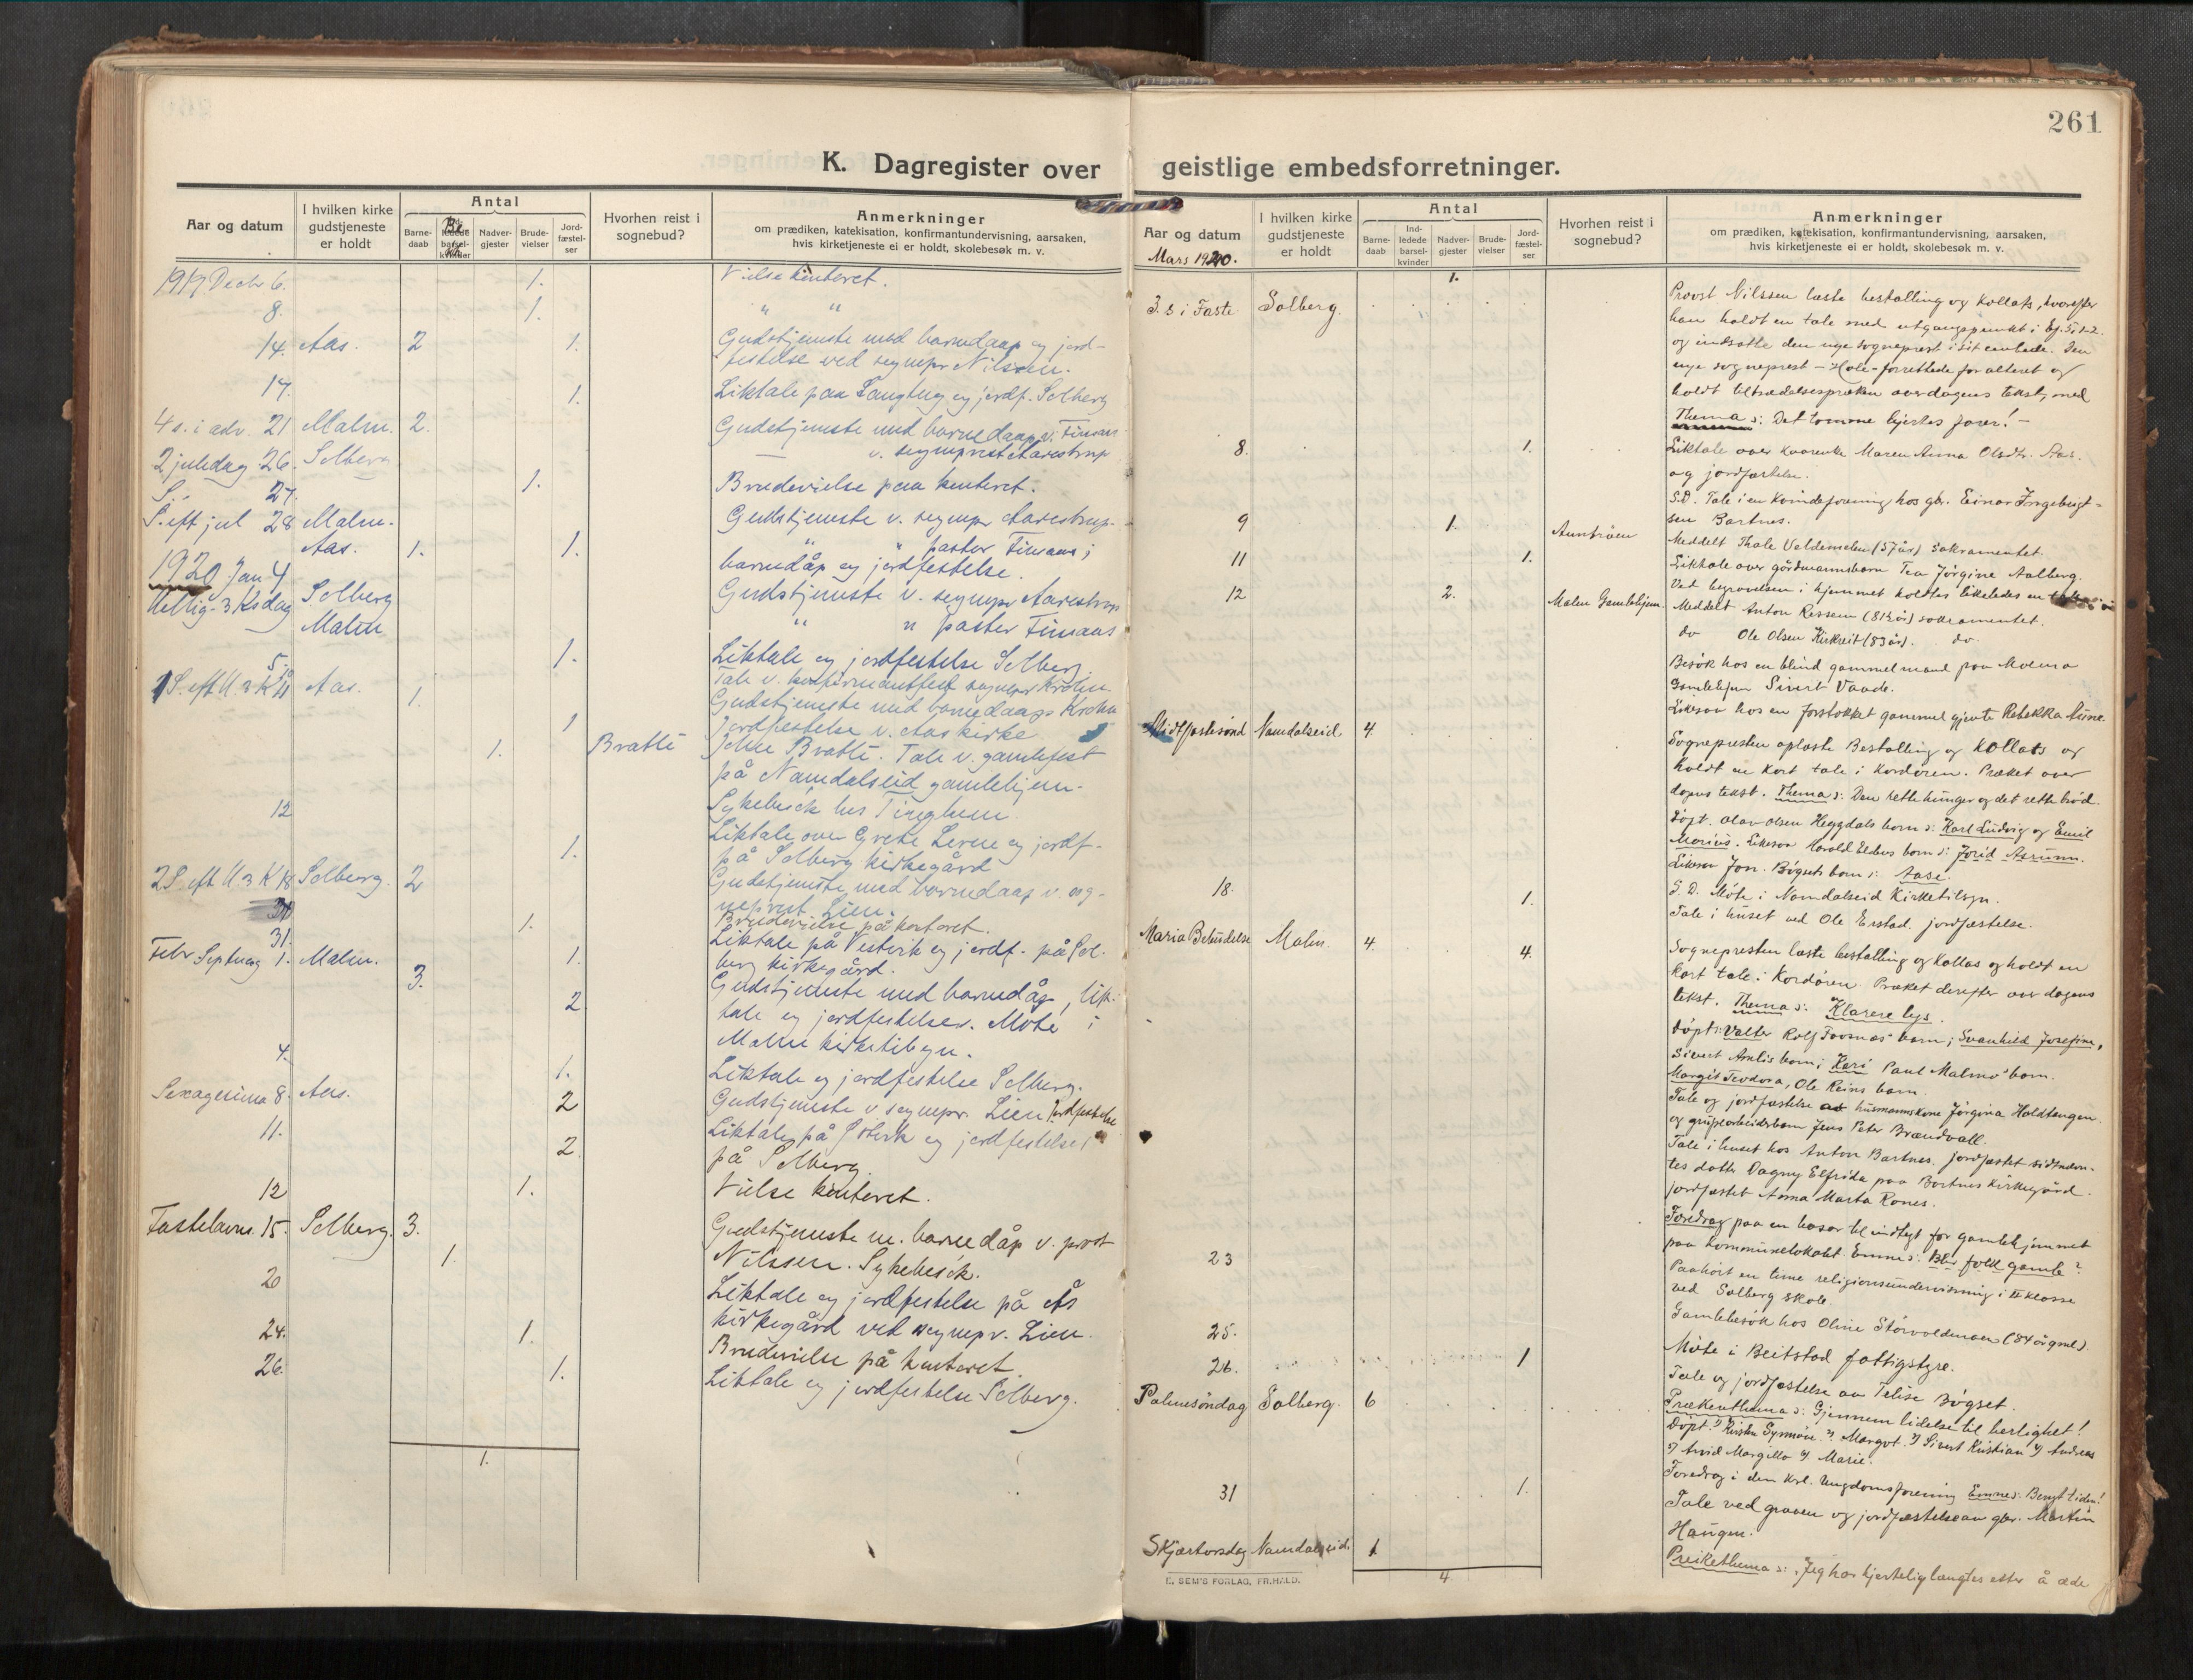 261
K. Dagregister over geistlige embedsforretninger.
Aar og datum
I hvilken kirke gudstjeneste er holdt
Antal
Barne-daab
barsel-kvinder
Nadver-gjester
Brude-vielser
Jord-fæstel-ser
Hvorhen reist i sognebud?
Anmerkninger
om prædiken, katekisation, konfirmantundervisning, aarsaken,
hvis kirketjeneste ei er holdt, skolebesøk m. v.
1919 Decbr 6. 1. Vielse kontoret.
8. 1. " "
14. Aas. 2 1. Gudstjeneste med barnedaap og jord-
festelse ved sognepr Nilssen.
17. 1. Liktale paa og jordf. Solberg
4 s. i adv. 21 Malm. 2. Gudstjeneste med barnedaap v.
2 juledag 26. Solberg — v. sogneprest Aarestrup
27. 1. Brudevielse paa kontoret.
S. eft jul 28 Malm. Gudstjeneste v. sognepr Aarestrup.
Aas. 1. 1. " " pastor
1920 Jan 4 barnedåp og jordfestelse.
Hellig-3 K's dag Solberg Gudstjeneste v. sognepr Aarestrup
Malm " " pastor
5. 1. Liktale og jordfestelse Solberg.
10 Tale v. sognepr Krohn
1 S. eft H. 3 K 11 Aas. 1. Gudstjeneste med barnedaap Krohn
1 Jordfestelse v. Aas kirke
1. Bratli Bratli. Tale v. gamlefest
på Namdalseid gamlehjem.
12 Sykebesøk hos
1. Liktale over Grete og jordf.
på Solberg kirkegård
2 S. eft H 3 K 18 Solberg. 2 Gudstjeneste med barnedaap v. sog-
neprest Lien.
1. Brudevielse på kontoret.
31. 1. Liktale på Vestvik og jordf. på Sol-
berg kirkegård.
Febr Septuag 1. Malm. 3. 2 Gudstjeneste med barnedåp, lik-
tale og jordfestelse. Møte i
Malm kirketilsyn.
4. 1. Liktale og jordfestelse Solberg.
Sexagesima 8. Aas. 2 Gudstjeneste v. sognepr. Lien Jordfestelse
11. 2 Liktale på og jordfestelse
på Solberg.
12 1. Vielse kontoret.
Fastelavns. 15. Solberg. 3. Gudstjeneste m. barnedåp v. prost
1. Nilssen. Sykebesøk.
20 Liktale og jordfestelse på Ås
kirkegård ved sognepr. Lien.
24. 1. Brudevielse på kontoret.
26. 1. Liktale og jordfestelse Solberg.
1.
Aar og datum
Mars 1920.
I hvilken kirke gudstjeneste er holdt
Antal
Barne-daab
Ind-ledede barsel-kvinder
Nadver-gjester
Brude-vielser
Jord-fæstel-ser
Hvorhen reist i sognebud?
Anmerkninger
om prædiken, katekisation, konfirmantundervisning, aarsaken,
hvis kirketjeneste ei er holdt, skolebesøk m. v.
1.
3. s i Faste Solberg. Provst Nilssen læste bestalling og Kollats, hvorefter
han holdt en tale med utgangspunkt i Ef. 5, 1-2.
og indsatte den nye sogneprest i sit embede. Den
nye sogneprest – Hole – forrettede for alteret og
holdt tiltrædelsespræken over dagens tekst, med
Thema: Det tomme hjertes farer! –
8. 1. Liktale over kaarenke Maren Anna Olsdtr. Aas.
og jordfæstelse.
S.D. Tale i en Kvindeforening hos gbr. Einar Ingebrigt-
sen Bartnes.
9 1. Aunbråen Meddelt Thale Veldemelen (57 år) Sakramentet.
11 1. Liktale over gårdmannsbarn Tea Jørgine Aalberg.
Ved begravelsen i hjemmet holdtes likeledes en
12 2. Malm Gamlehjem. Meddelt Anton Ressem (81½ år) sakramentet.
do Ole Olsen Kirkreit (83 år). do.
Besøk hos en blind gammel mand paa Malm
Gamlehjem Sivert Vaade.
Likesaa hos en forstokket gammel gjente Rebekka
Midtfastesønd Namdalseid 4 Sognepresten oplæste Bestalling og Kollats og
holdt en kort tale i Kordøren. Præket over
dagens tekst. Thema: Den rette hunger og det rette brød.
Døpt. Olav Olsen Heggdals barn: Karl Ludvig og Emil
Marius. Likesaa Harald Eldens barn: Jorid Asrunn.
Likesaa Jon. Bøgsets barn: Aase.
S. D. Møte i Namdalseid Kirketilsyn.
18. 1. Tale i huset ved Ole Erstad. jordfæstelse.
Maria Bebudelse Malm. 4. 4. Sognepresten læste bestalling og Kollas og holdt en
kort tale i Kordøren. Præket derefter over dagens
tekst. Thema: Klarere lys.
Døpt: Valter Rolf Tvosnæs barn; Svanhild Josefine,
Sivert Amlis barn; Kari Paul Malmo's barn.
Margit Teodora, Ole Reins barn.
Tale og jordfæstelse husmannskone Jørgina Holdtangen
og grubearbeidsbarn Jens Peter Brændvall.
Tale i huset hos Anton Bartnes. jordfæstet
tes datter Dagny Elfrida paa Bartnes Kirkegård.
jordfæstet Anna Marta Rones.
23 Foredrag paa en basar til indtægt for gamlehjemmet
paa kommunelokalet. Emne: Blir folk gamle?
Paahørt en time religionsundervisning i II klasse
ved Solberg skole.
Gamlebesøk hos Oline Storvoldmoen (84 år gml.)
25. Møte i Beitstad fattigstyre.
26. 1 Tale og jordfæstelse av Telise Bøgset.
Palmesøndag Solberg. 6 Prækenthema: Gjennem lidelse til herlighet!
Døpt: Kirsten Synnøve. Margot. Sivert Kristian Andreas
Arvid Margillo Marie.
Foredrag i den krl. Ungdomsforening Emne: Benyt tiden!
31 1. Tale ved graven og jordfæstelse av gbr. Martin
Haugen.
Skjærtorsdag Namdalseid. 1 Preikethema: „Jeg har hjertelig længtes etter å æde
4
E. SEM'S FORLAG, FR.HALD.